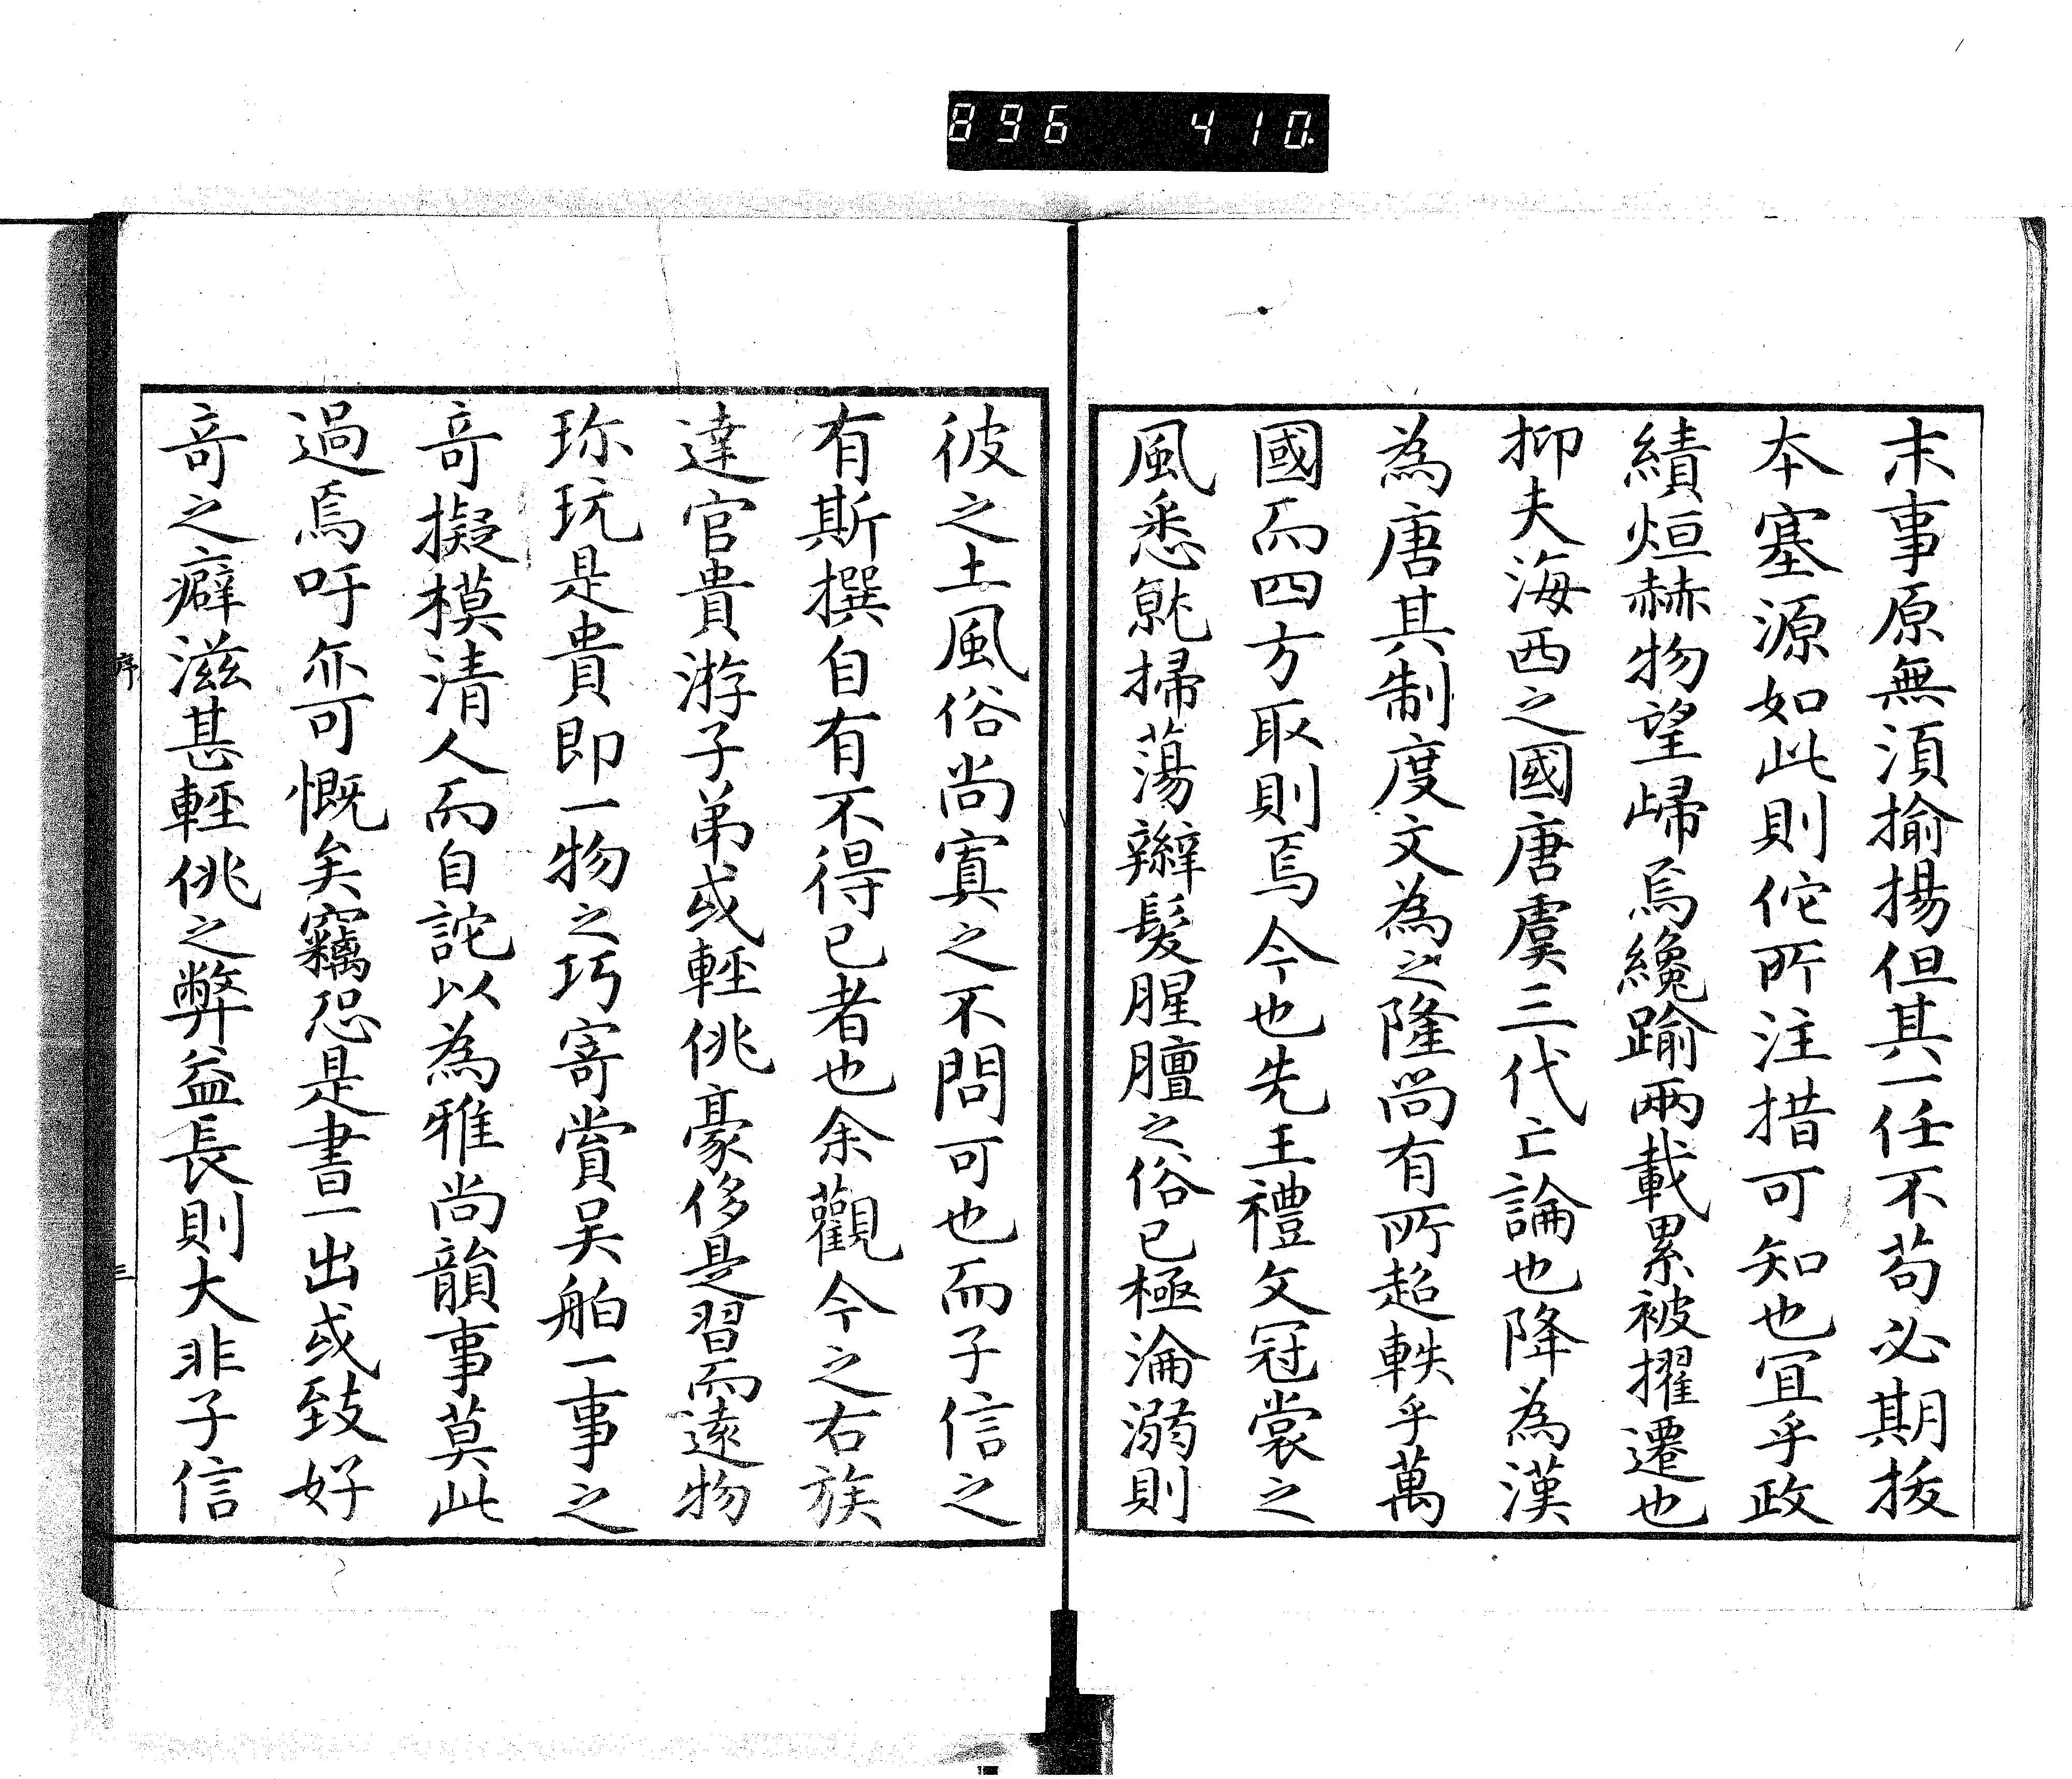 896 410
末事原無須揄揚但其一任不苟必期拔
本塞源如此則佗所注措可知也宜乎政
績烜赫物望歸焉纔踰兩載累被擢遷也
抑夫海西之國唐虞三代亡論也降為漢
為唐其制度文為之隆尚有所超軼乎萬
國而四方取則焉今也先王禮文冠裳之
風悉就掃蕩辮髮腥膻之俗已極淪溺則
彼之土風俗尚寘之不問可也而子信之
有斯撰自有不得已者也余觀今之右族
達官貴游子弟或輕佻豪侈是習而遠物
珎玩是貴即一物之巧寄賞吴舶一事之
竒擬模清人而自詫以為雅尚韻事莫此
過焉吁亦可慨矣竊恐是書一出或致好
竒之癖滋甚輕佻之弊益長則大非子信
序
三